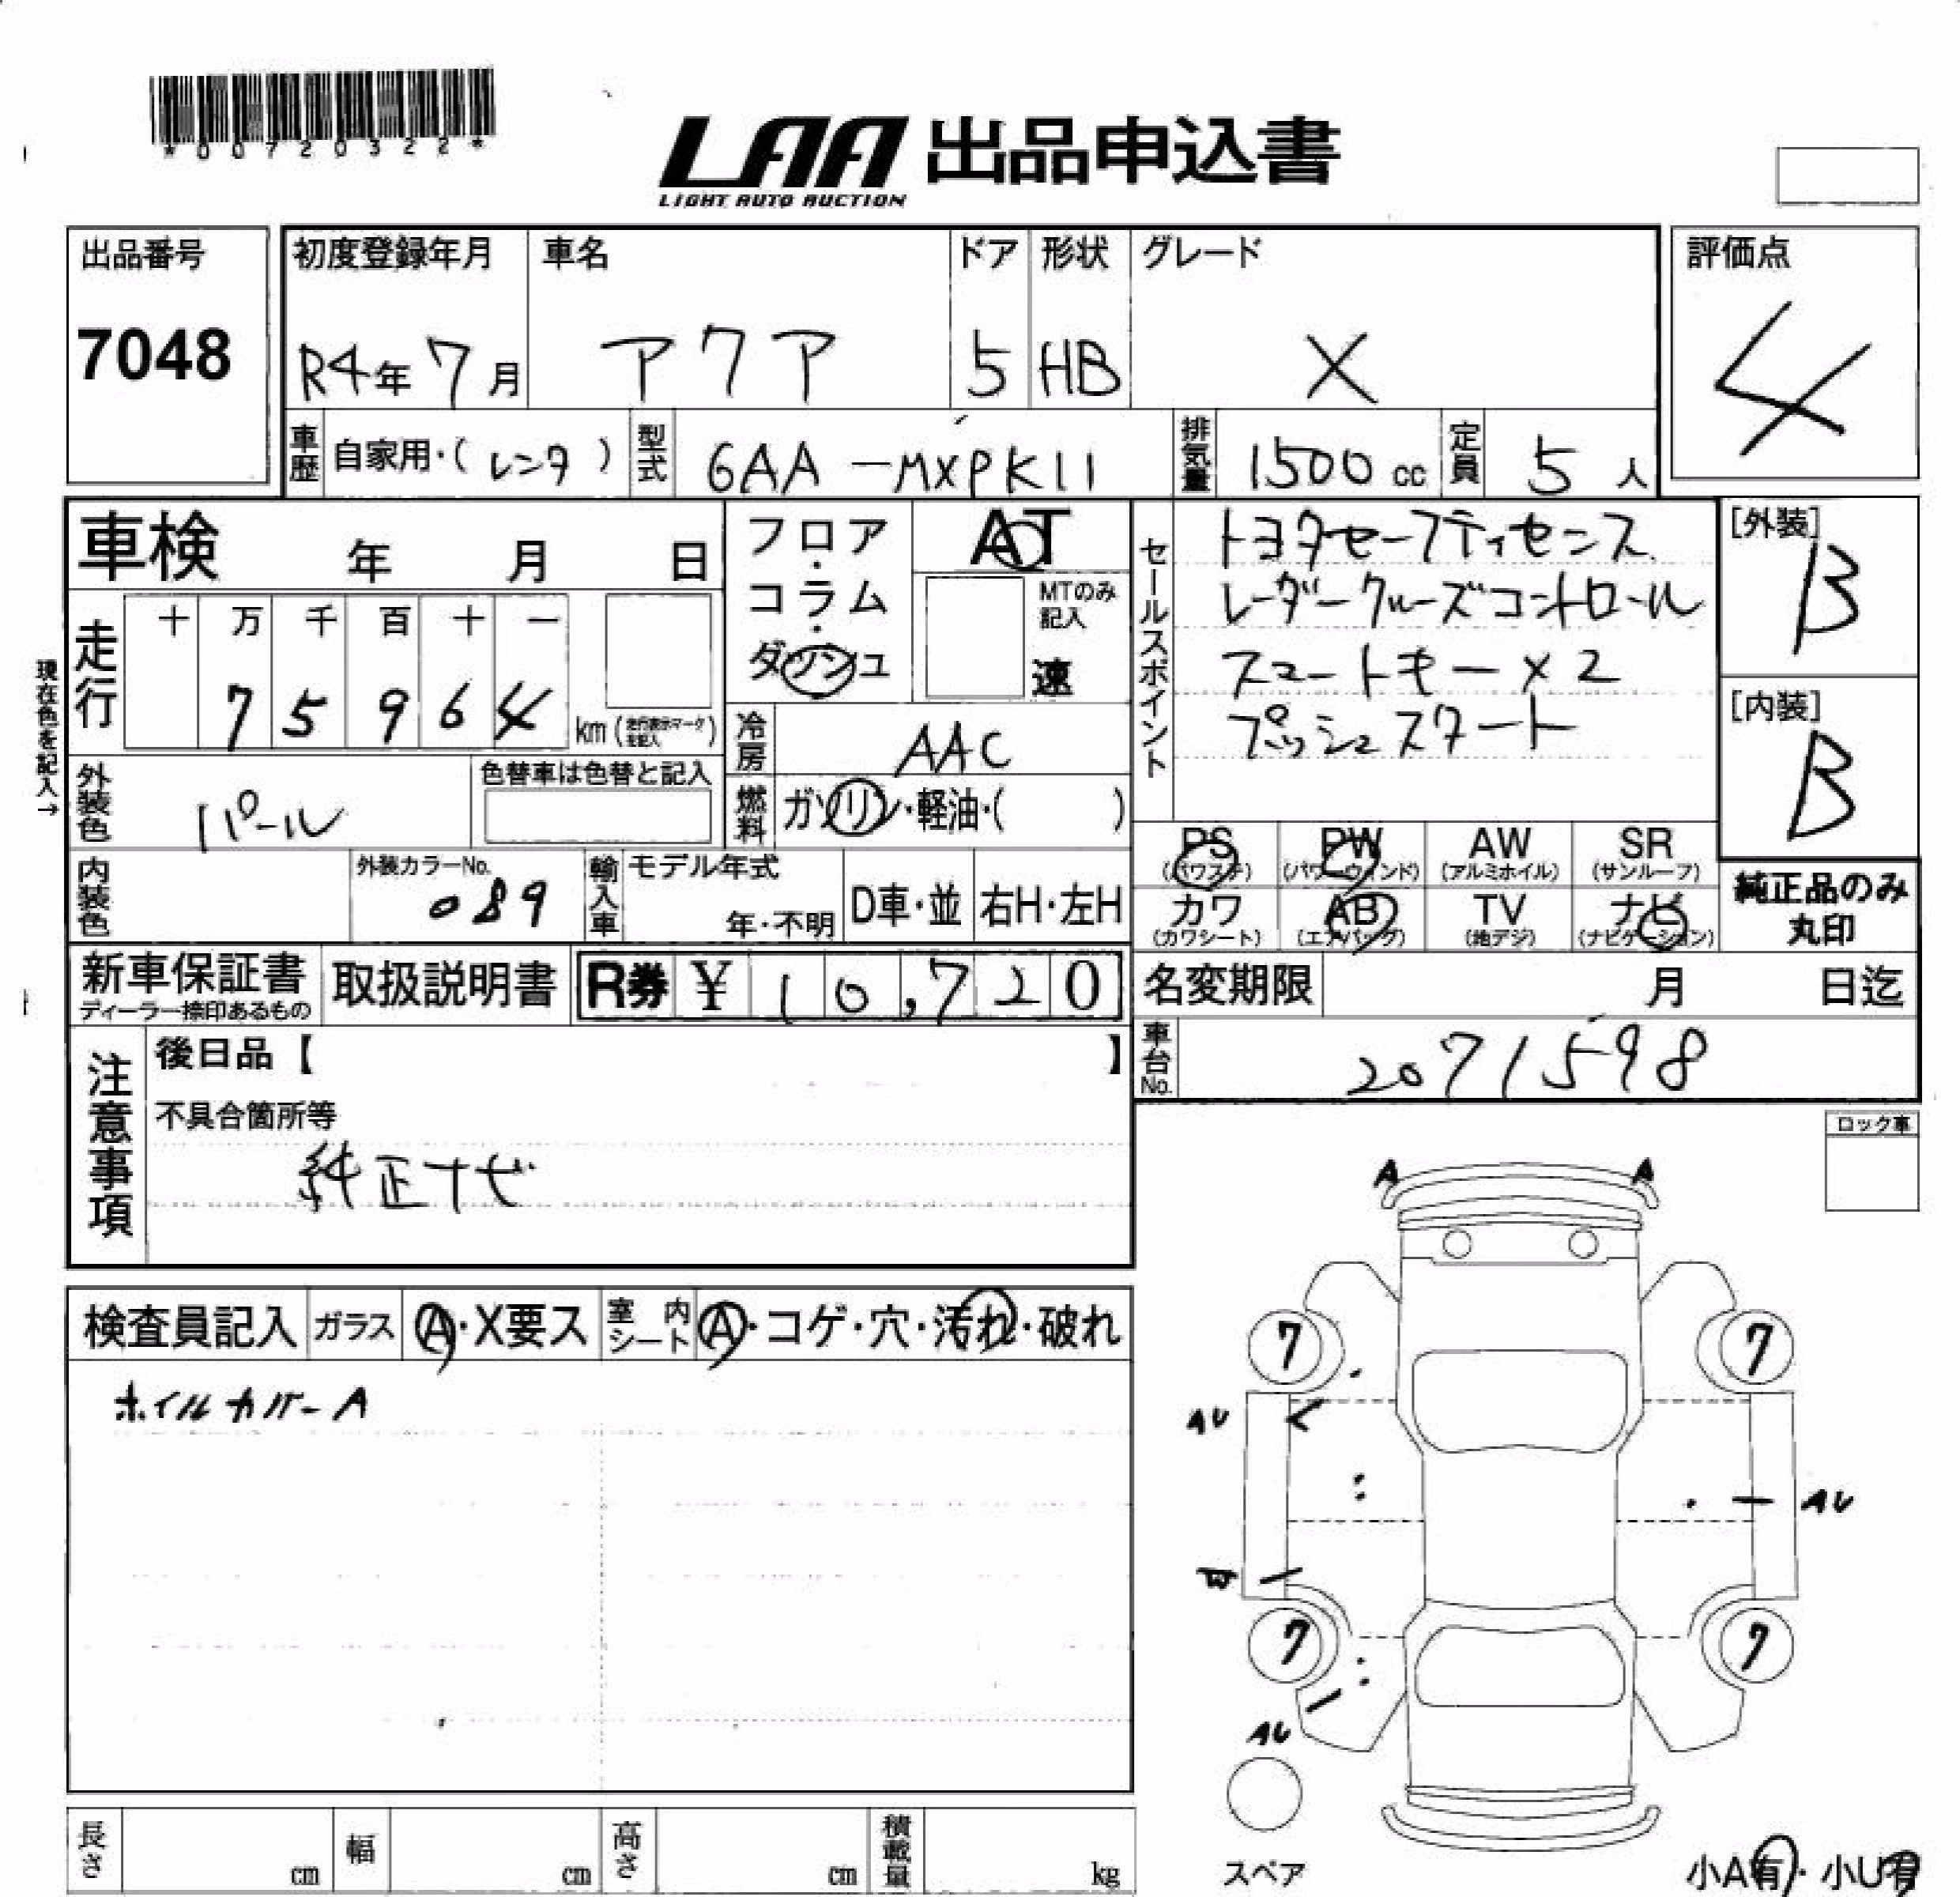 *00720322*
LAA 出品申込書
LIGHT AUTO AUCTION
出品番号
7048
初度登録年月
R4年 7月
車名
アクア
ドア
5
形状
HB
グレード
X
評価点
4
車歴 自家用・( レンタ )
型式 6AA-MXPK11
排気量 1500 cc
定員 5 人
車検 年 月 日
走行 十 万 千 百 十 一
7 5 9 6 4 km (走行表示マークを記入)
現在色を記入→
外装色 パール
色替車は色替と記入
内装色
外装カラーNo. 089
輸入車 モデル年式 年・不明
D車・並
右H・左H
フロア・コラム・ダッシュ
AT
MTのみ記入
速
冷房 AAC
燃料 ガソリン・軽油・( )
セールスポイント
トヨタセーフティセンス
レーダークルーズコントロール
スマートキー×2
プッシュスタート
[外装]
B
[内装]
B
PS (パワステ)
PW (パワーウインド)
AW (アルミホイル)
SR (サンルーフ)
カワ (カワシート)
AB (エアバッグ)
TV (地デジ)
ナビ (ナビゲーション)
純正品のみ
丸印
新車保証書
ディーラー捺印あるもの
取扱説明書
R券 ¥ 10,720
名変期限 月 日迄
車台No. 2071598
注意事項
後日品【 】
不具合箇所等
純正ナビ
ロック車
検査員記入
ガラス A・X要ス
室内シート A・コゲ・穴・汚れ・破れ
ホイルカバーA
A A
7 7
AU
AU
W
7 7
AU
スペア
小A有・小U有
長さ cm
幅 cm
高さ cm
積載量 kg